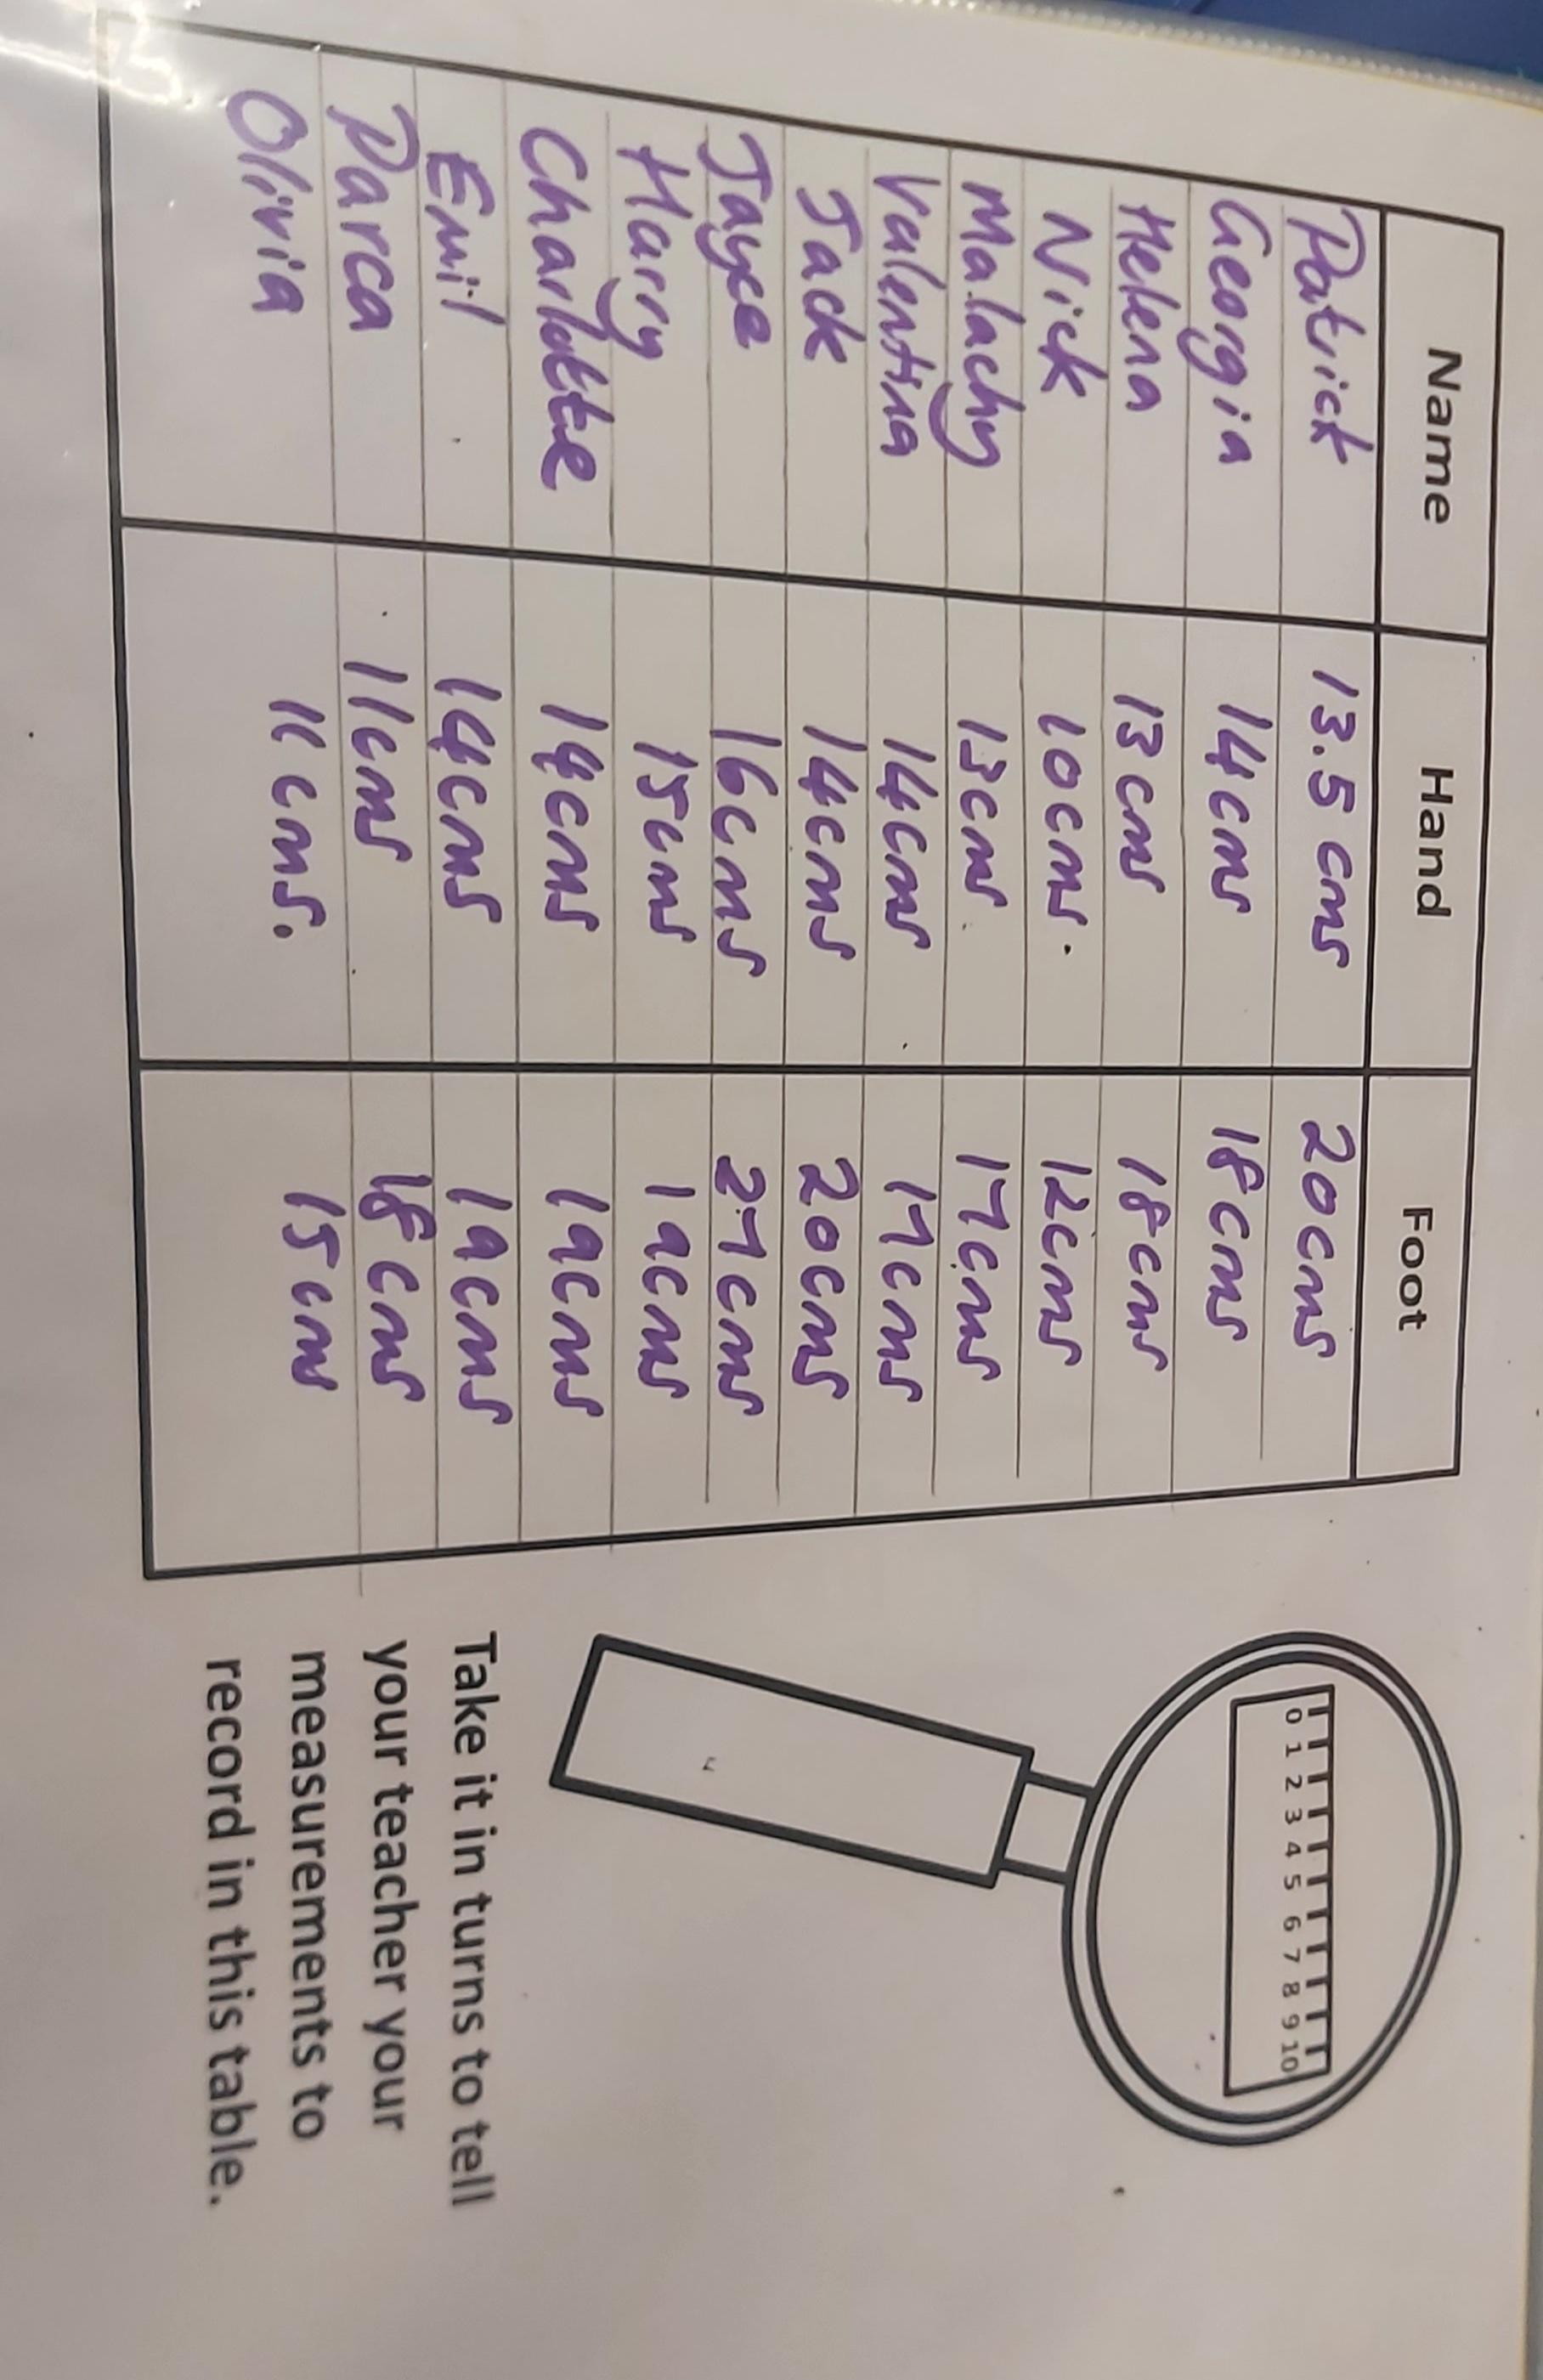 Name Hand Foot
Patrick 13.5 cms 20cms
Georgia 14cms 18cms
Helena 13cms 18cms
Nick 10cms. 12cms
Malachy 13cms 17cms
Valentina 14cms 17cms
Jack 14cms 20cms
Jayce 16cms 27cms
Harry 15cms 19cms
Charlotte 14cms 19cms
Emil 14cms 19cms
Parca 11cms 18cms
Olivia 11cms. 15cms
0 1 2 3 4 5 6 7 8 9 10
Take it in turns to tell
your teacher your
measurements to
record in this table.